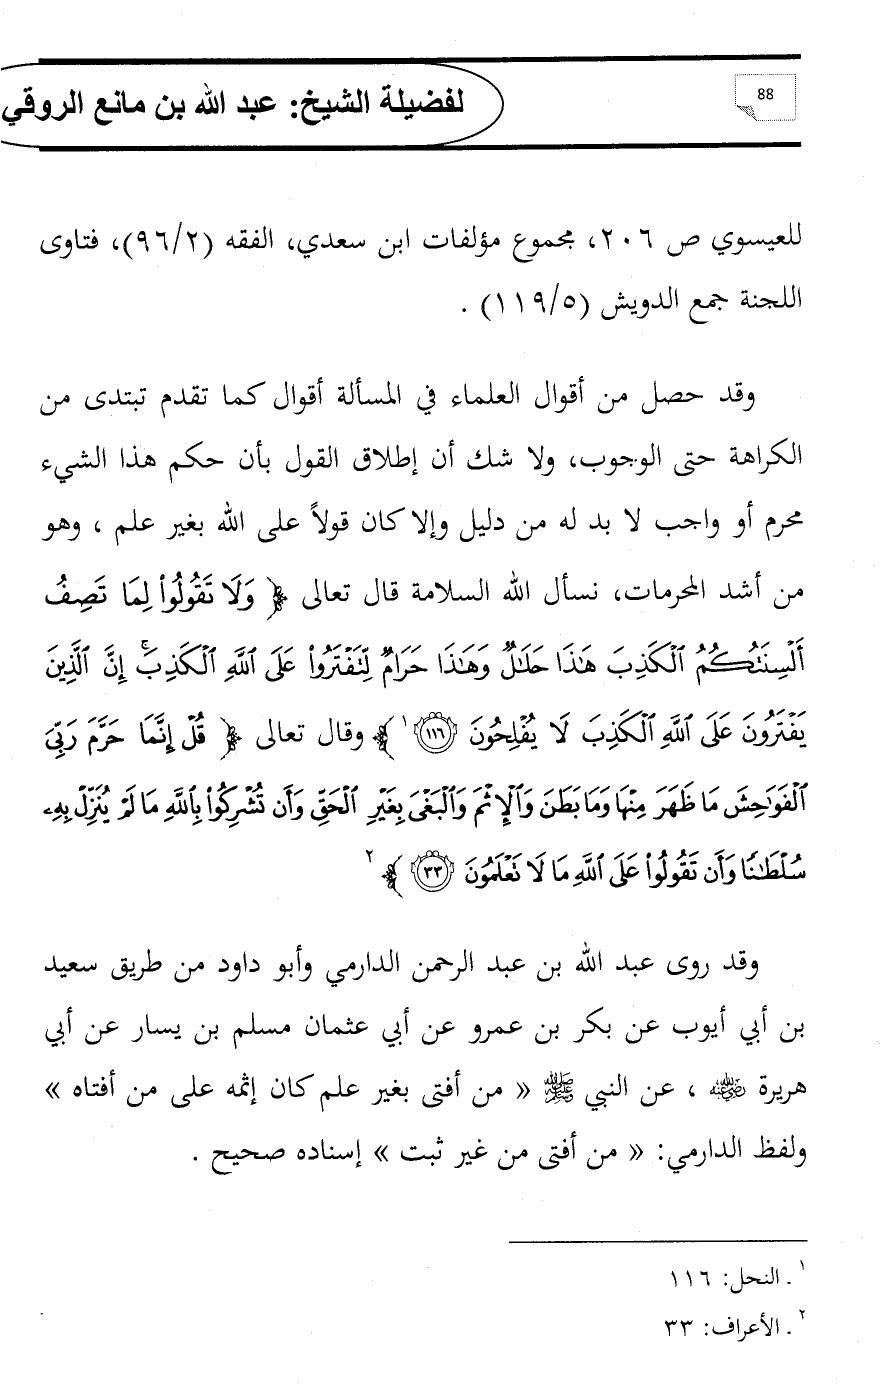 88
لفضيلة الشيخ: عبد الله بن مانع الروقي
للعيسوي ص ٢٠٦، مجموع مؤلفات ابن سعدي، الفقه (٩٦/٢)، فتاوى
اللجنة جمع الدويش (١١٩/٥) .
وقد حصل من أقوال العلماء في المسألة أقوال كما تقدم تبتدى من
الكراهة حتى الوجوب، ولا شك أن إطلاق القول بأن حكم هذا الشيء
محرم أو واجب لا بد له من دليل وإلا كان قولاً على الله بغير علم ، وهو
من أشد المحرمات، نسأل الله السلامة قال تعالى ﴿ وَلَا تَقُولُوا۟ لِمَا تَصِفُ
أَلْسِنَتُكُمُ ٱلْكَذِبَ هَـٰذَا حَلَـٰلٌ وَهَـٰذَا حَرَامٌ لِّتَفْتَرُوا۟ عَلَى ٱللَّهِ ٱلْكَذِبَ ۚ إِنَّ ٱلَّذِينَ
يَفْتَرُونَ عَلَى ٱللَّهِ ٱلْكَذِبَ لَا يُفْلِحُونَ ١١٦ ﴾١ وقال تعالى ﴿ قُلْ إِنَّمَا حَرَّمَ رَبِّىَ
ٱلْفَوَٰحِشَ مَا ظَهَرَ مِنْهَا وَمَا بَطَنَ وَٱلْإِثْمَ وَٱلْبَغْىَ بِغَيْرِ ٱلْحَقِّ وَأَن تُشْرِكُوا۟ بِٱللَّهِ مَا لَمْ يُنَزِّلْ بِهِۦ
سُلْطَـٰنًا وَأَن تَقُولُوا۟ عَلَى ٱللَّهِ مَا لَا تَعْلَمُونَ ٣٣ ﴾٢
وقد روى عبد الله بن عبد الرحمن الدارمي وأبو داود من طريق سعيد
بن أبي أيوب عن بكر بن عمرو عن أبي عثمان مسلم بن يسار عن أبي
هريرة رضي الله عنه ، عن النبي ﷺ « من أفتى بغير علم كان إثمه على من أفتاه »
ولفظ الدارمي: « من أفتى من غير ثبت » إسناده صحيح .
١ . النحل: ١١٦
٢ . الأعراف: ٣٣